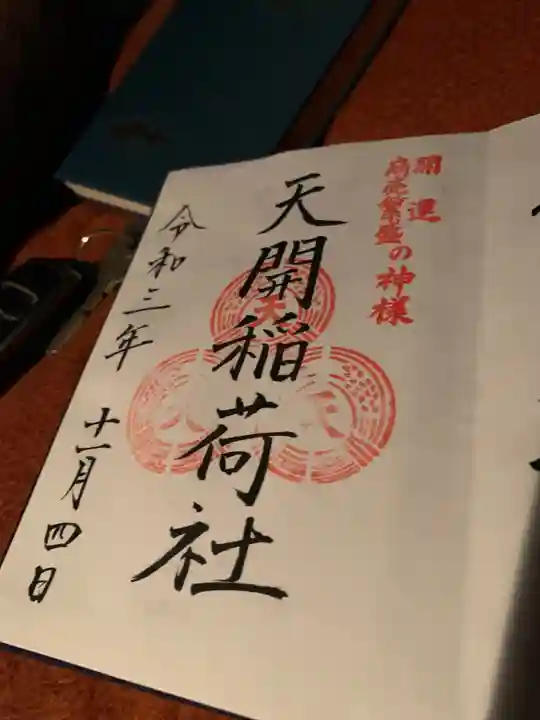 開運
商売繁盛の神様
天開稲荷社
令和三年 十一月四日
天
天
天